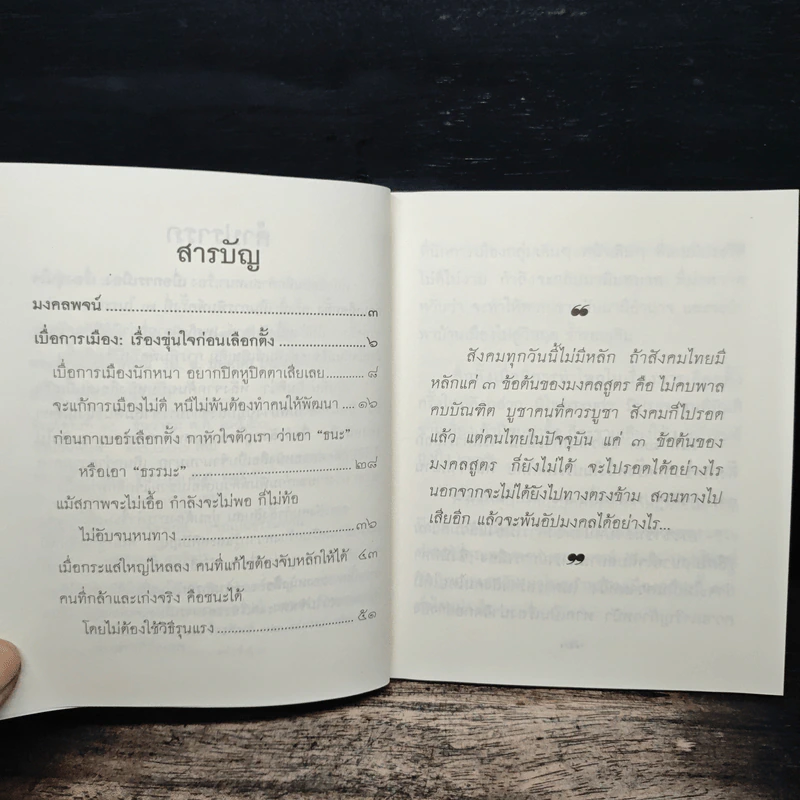 สารบัญ
มงคลพจน์ ........ ๓
เบื่อการเมือง: เรื่องขุ่นใจก่อนเลือกตั้ง ........ ๖
เบื่อการเมืองนักหนา อยากปิดหูปิดตาเสียเลย ........ ๘
จะแก้การเมืองไม่ดี หนีไม่พ้นต้องทำคนให้พัฒนา .... ๑๖
ก่อนกาเบอร์เลือกตั้ง กาหัวใจตัวเรา ว่าเอา “ธนะ”
หรือเอา “ธรรมะ” ........ ๒๘
แม้สภาพจะไม่เอื้อ กำลังจะไม่พอ ก็ไม่ท้อ
ไม่อับจนหนทาง ........ ๓๖
เมื่อกระแสใหญ่ไหลลง คนที่แก้ไขต้องจับหลักให้ได้ ๔๓
คนที่กล้าและเก่งจริง คือชนะได้
โดยไม่ต้องใช้วิธีรุนแรง ........ ๕๑
“
สังคมทุกวันนี้ไม่มีหลัก ถ้าสังคมไทยมี
หลักแค่ ๓ ข้อต้นของมงคลสูตร คือ ไม่คบพาล
คบบัณฑิต บูชาคนที่ควรบูชา สังคมก็ไปรอด
แล้ว แต่คนไทยในปัจจุบัน แค่ ๓ ข้อต้นของ
มงคลสูตร ก็ยังไม่ได้ จะไปรอดได้อย่างไร
นอกจากจะไม่ได้ยังไปทางตรงข้าม สวนทางไป
เสียอีก แล้วจะพ้นอัปมงคลได้อย่างไร...
”